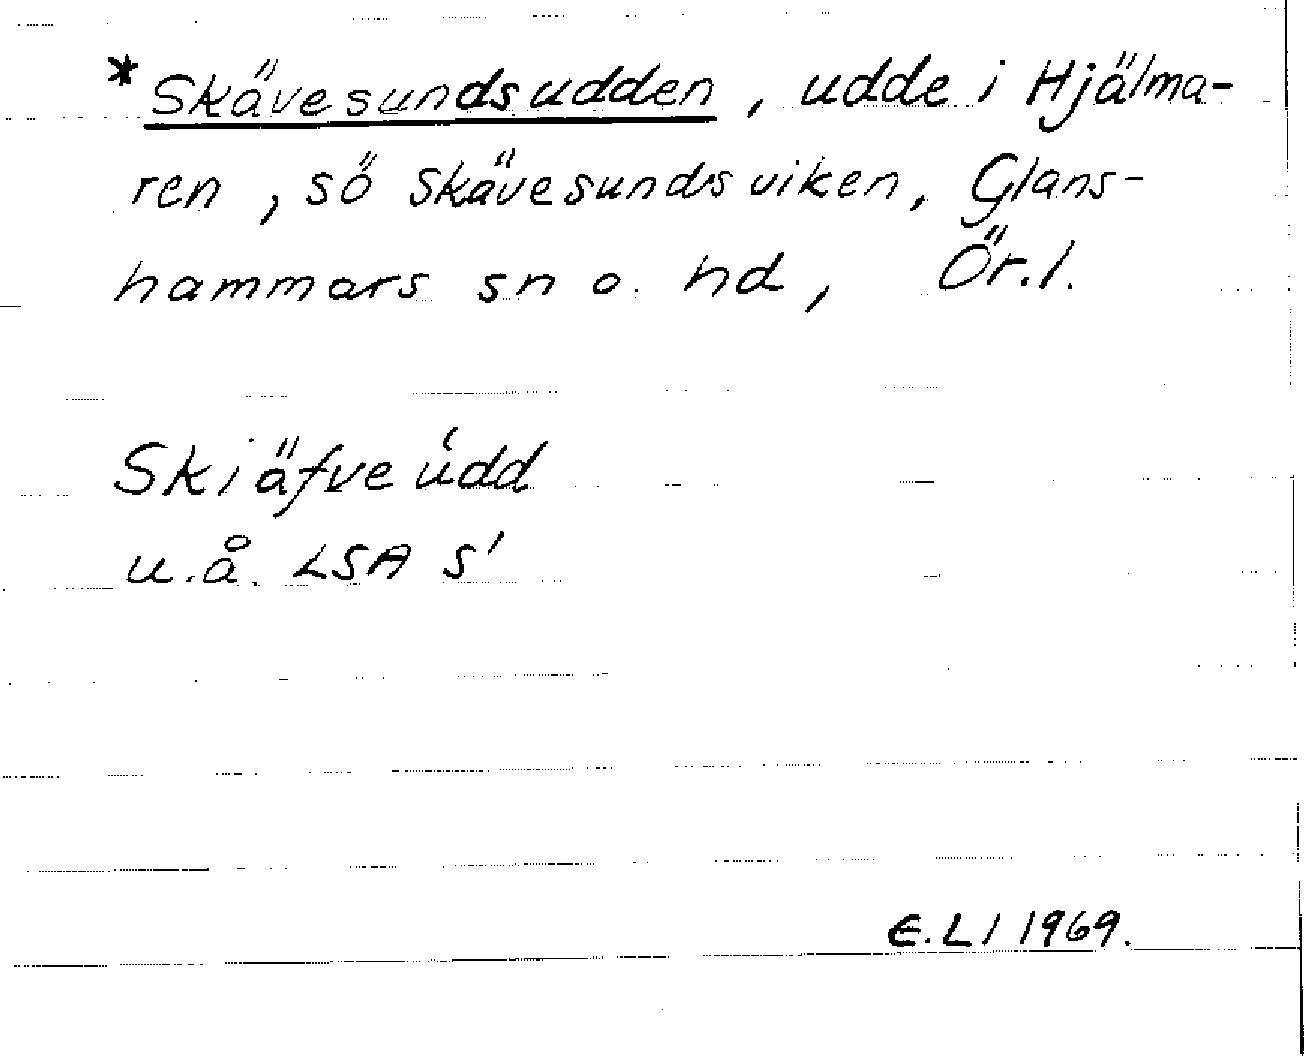 *Skävesundsudden, udde i Hjälma-
ren, sö Skävesundsviken, Glans-
hammars sn o. hd, Ör.l.
Skiäfve údd
u.å. LSA S'
E.Ll 1969.